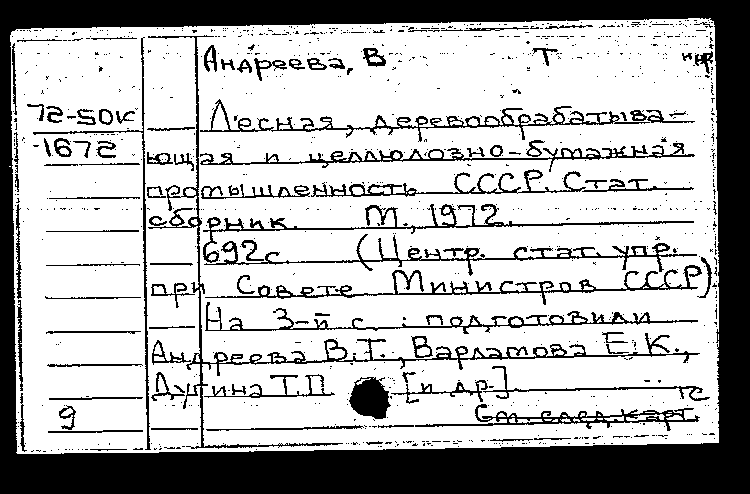 Андреева, В Т
72-50к Лесная, деревообрабатыва-
1672 ющая и целлюлозно-бумажная
промышленность СССР. Стат.
сборник. М., 1972.
692с. (Центр. стат. упр.
при Совете Министров СССР)
На 3-й с. : подготовили
Андреева В.Т., Варламова Е.К.,
Дугина Т.П. [и др.]
9 См. след. карт.